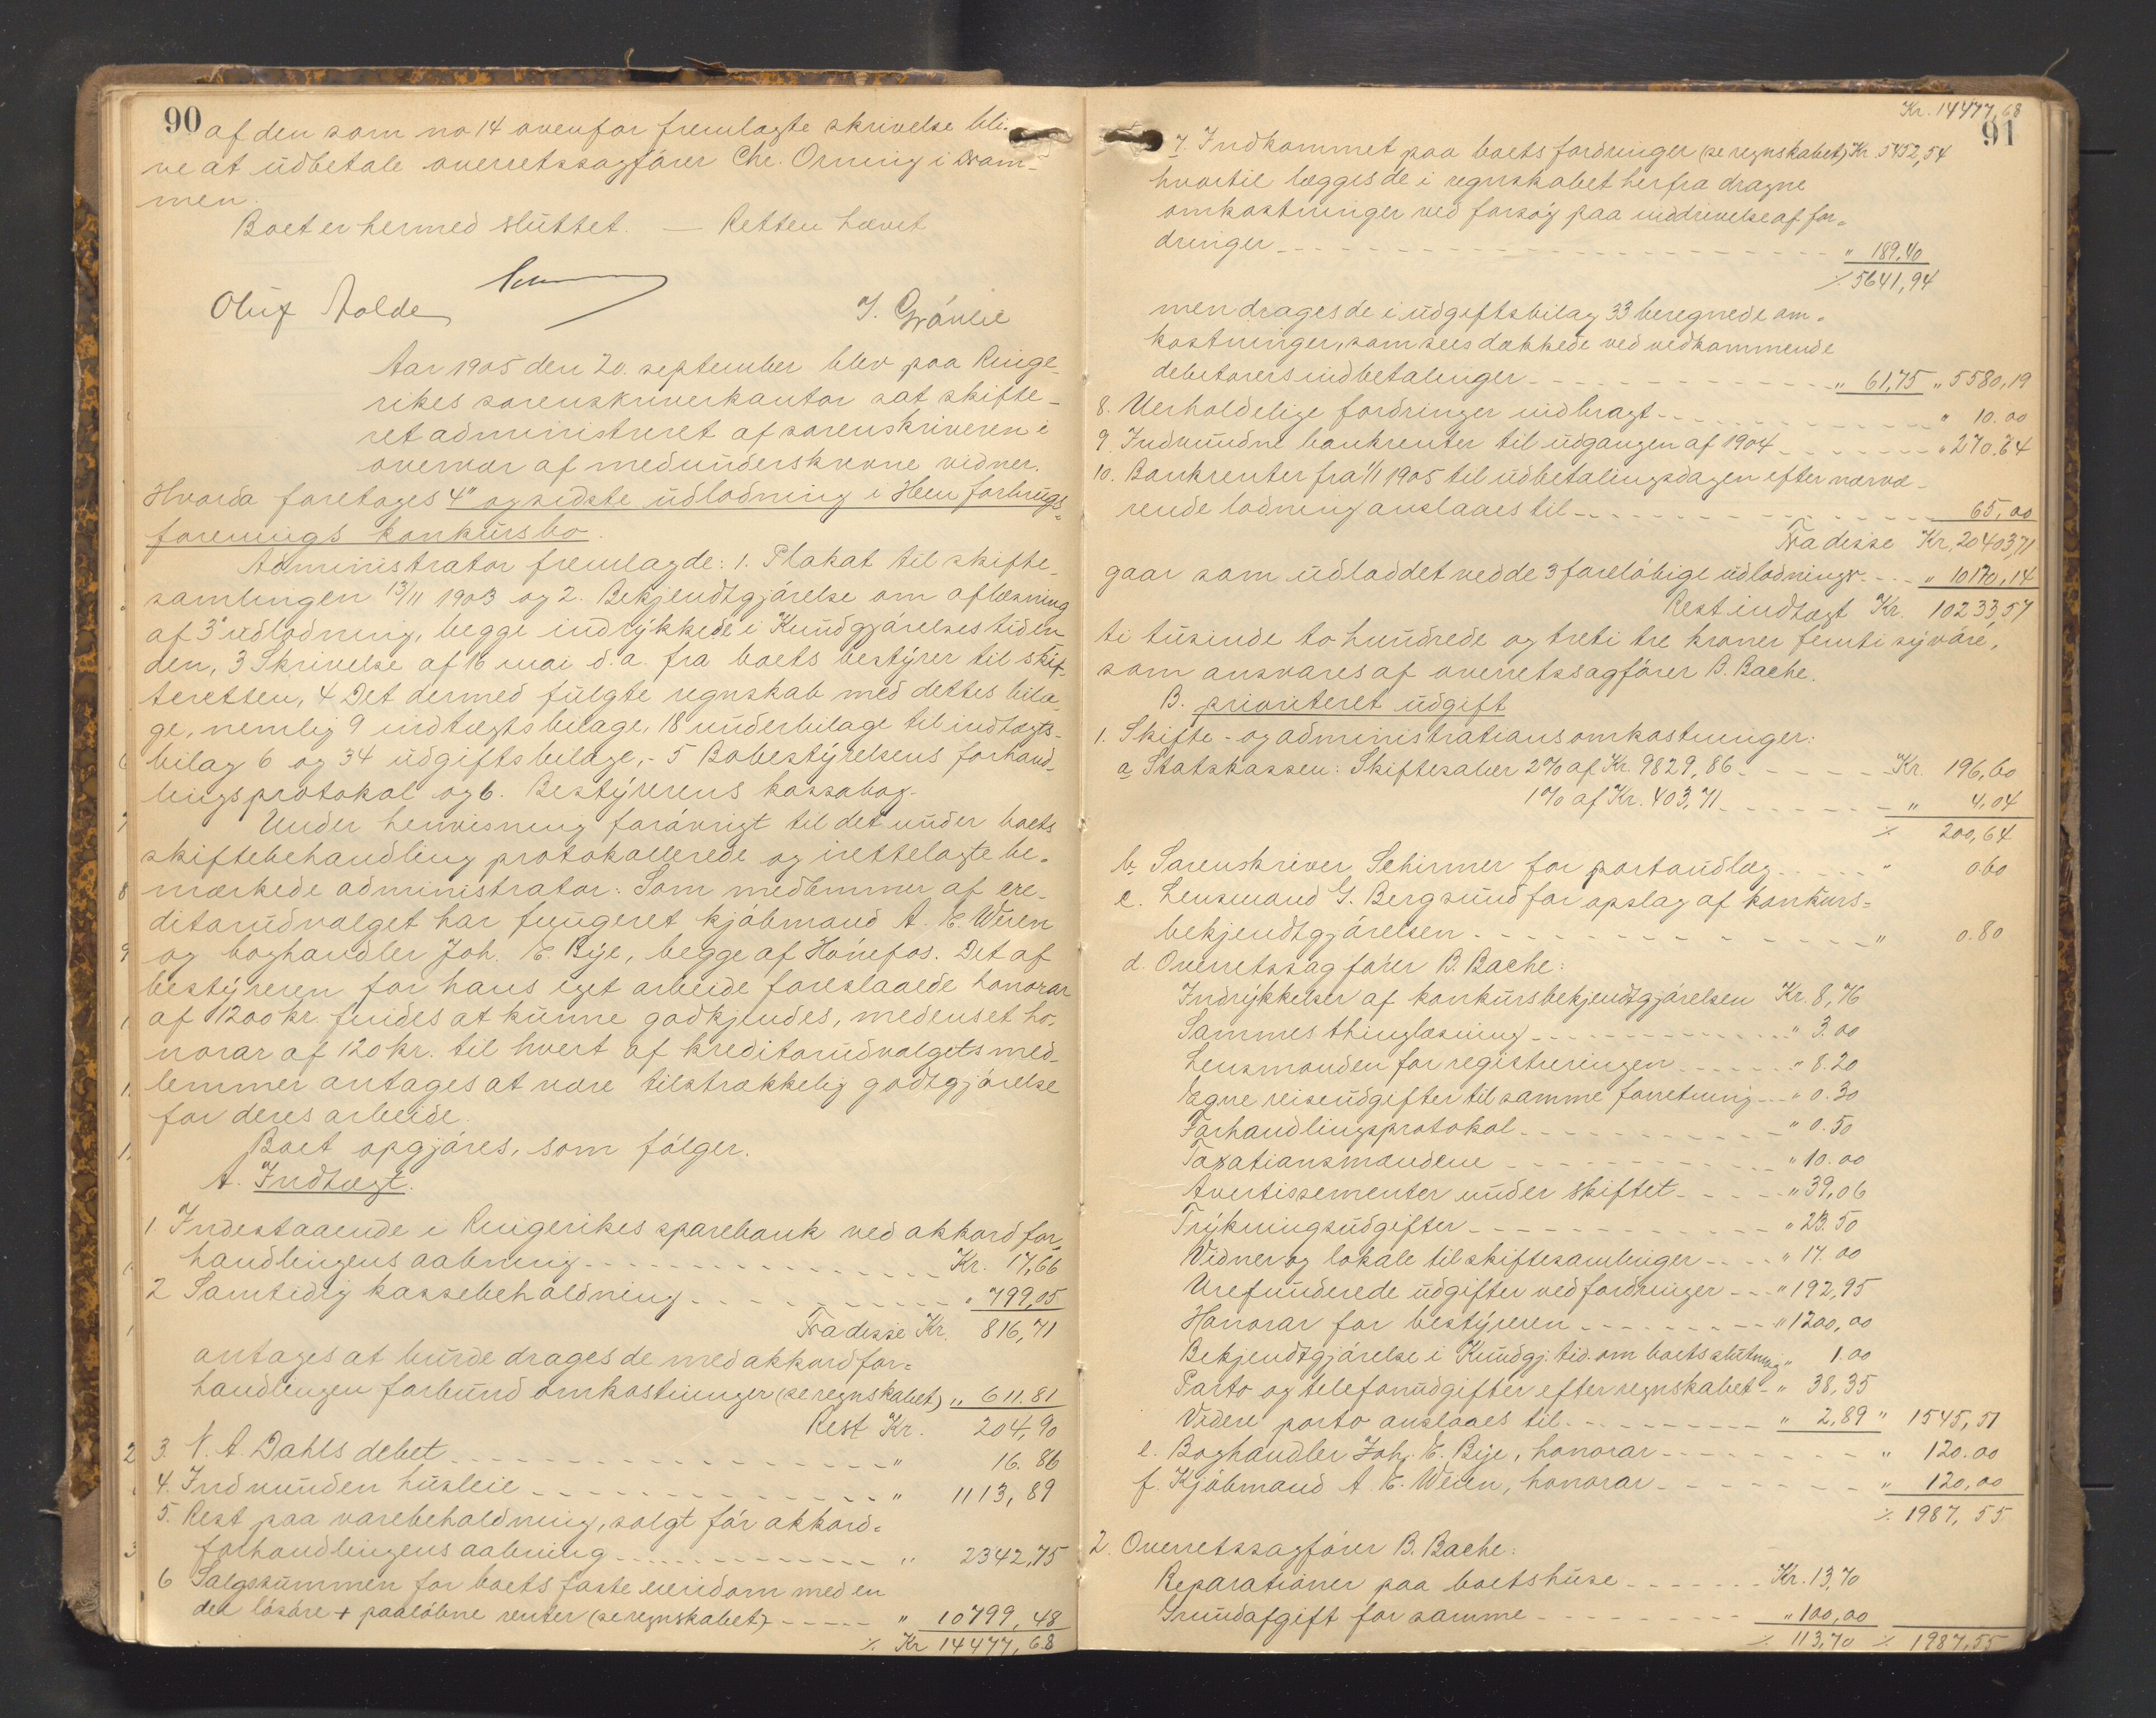 90
af den som no 14 ovenfor fremlagte skrivelse bli-
ve at udbetale overretssagfører Chr. Orning i Dram-
men.
Boet er hermed sluttet. — Retten hævet
Oluf Aolde
J. Grønlie
Aar 1905 den 20. september blev paa Ringe-
rikes sorenskriverkontor sat skifte-
ret administreret af sorenskriveren i
overvær af medunderskrevne vidner.
Hvorda foretoges 4" og sidste udlodning i Heen forbrugs-
forenings konkursbo.
Administrator fremlagde: 1. Plakat til skifte-
samlingen 13/11 1903 og 2. Bekjendtgjørelse om aflæsning
af 3" udlodning, begge indrykkede i Kundgjørelsestiden-
den, 3 Skrivelse af 16 mai d.a. fra boets bestyrer til skif-
teretten, 4 Det dermed fulgte regnskab med dettes bila-
ge, nemlig 9 indtægtsbilage, 18 underbilage til indtægts-
bilag 6 og 34 udgiftsbilage, - 5 Bobestyrelsens forhand-
lingsprotokol og 6. Bestyrerens kassabog.
Under henvisning forøvrigt til det under boets
skiftebehandling protokollerede og irettelagte be-
mærkede administrator: Som medlemmer af cre-
ditorudvalget har fungeret kjøbmand A. E. Weien
og boghandler Joh. E. Bye, begge af Hønefos. Det af
bestyreren for hans eget arbeide foreslaaede honorar
af 1200 kr. findes at kunne godkjendes, medens et ho-
norar af 120 kr. til hvert af kreditorudvalgets med-
lemmer antages at være tilstrækkelig godtgjørelse
for deres arbeide.
Boet opgjøres, som følger.
A. Indtægt.
1. Indestaaende i Ringerikes sparebank ved akkordfor-
handlingens aabning Kr. 17,66
2 Samtidig kassebeholdning " 799,05
Tradisse Kr. 816,71
antages at burde drages de med akkordfor-
handlingen forbund omkostninger (se regnskabet) " 611.81
Rest Kr. 204,90
3. N. A. Dahls debet " 16.86
4. Indvunden husleie " 1113,89
5. Rest paa varebeholdning, solgt før akkord-
forhandlingens aabning " 2342,75
6 Salgssummen for boets faste eiendom med en
del løsøre + paaløbne renter (se regnskabet) " 10799,48
% Kr 14477,68
Kr. 14477,68
91
7. Indkommet paa boets fordringer (se regnskabet) Kr. 5452,54
hvortil lægges de i regnskabet herfra dragne
omkostninger ved forsøg paa inddrivelse af for-
dringer " 189,40
% 5641,94
men drages de i udgiftsbilag 33 beregnede om-
kostninger, som sees dækkede ved vedkommende
debitorers indbetalinger " 61,75 " 5580,19
8. Uerholdelige fordringer indbragt " 10.00
9. Indvundne bankrenter til udgangen af 1904 " 270.64
10. Bankrenter fra 1/1 1905 til udbetalingsdagen efter nærvæ-
rende lodning anslaaes til 65,00
Fradisse Kr. 20403,71
gaar som udloddet ved de 3 foreløbige udlodninger " 10170,14
Rest indtægt Kr. 10233,57
ti tusinde to hundrede og treti tre kroner femti syv øre,
som ansvares af overretssagfører B. Bache.
B. prioriteret udgift
1. Skifte- og administrationsomkostninger:
a, Statskassen: Skiftesalær 2% af Kr. 9829,86 Kr. 196,60
1% af Kr. 403,71 " 4,04
% 200,64
b. Sorenskriver Schirmer for portoudlæg " 0.60
c. Lensmand G. Bergsund for opslag af konkurs-
bekjendtgjørelsen " 0.80
d. Overretssagfører B. Bache:
Indrykkelser af konkursbekjendtgjørelsen Kr. 8,76
Sammes thinglæsning " 3.00
Lensmanden for registreringen " 8.20
Egne reiseudgifter til samme forretning " 0.30
Forhandlingsprotokol " 0.50
Taxationsmændene " 10.00
Avertissementer under skiftet " 39,06
Trykningsudgifter " 23.50
Vidner og lokale til skiftesamlinger " 17.00
Urefunderede udgifter ved fordringer " 192,95
Honorar for bestyreren " 1200,00
Bekjendtgjørelse i Kundgj. tid. om boets slutning " 1.00
Porto og telefonudgifter efter regnskabet " 38,35
Videre porto anslaaes til " 2,89 " 1545,51
e. Boghandler Joh. E. Bye, honorar " 120.00
f. Kjøbmand A. E. Weien, honorar " 120,00
% 1987,55
2. Overretssagfører B. Bache:
Reparationer paa boets huse Kr. 13,70
Grundafgift for samme " 100,00
% 113,70 % 1987,55